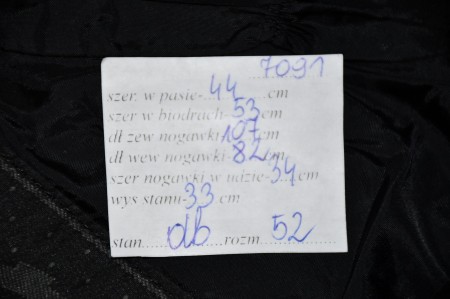 ...7091
szer. w pasie-44...........cm
szer w biodrach-53cm
dł zew nogawki-107cm
dł wew nogawki-82cm
szer nogawki w udzie-34cm
wys stanu-33.cm
stan......db....rozm...52............